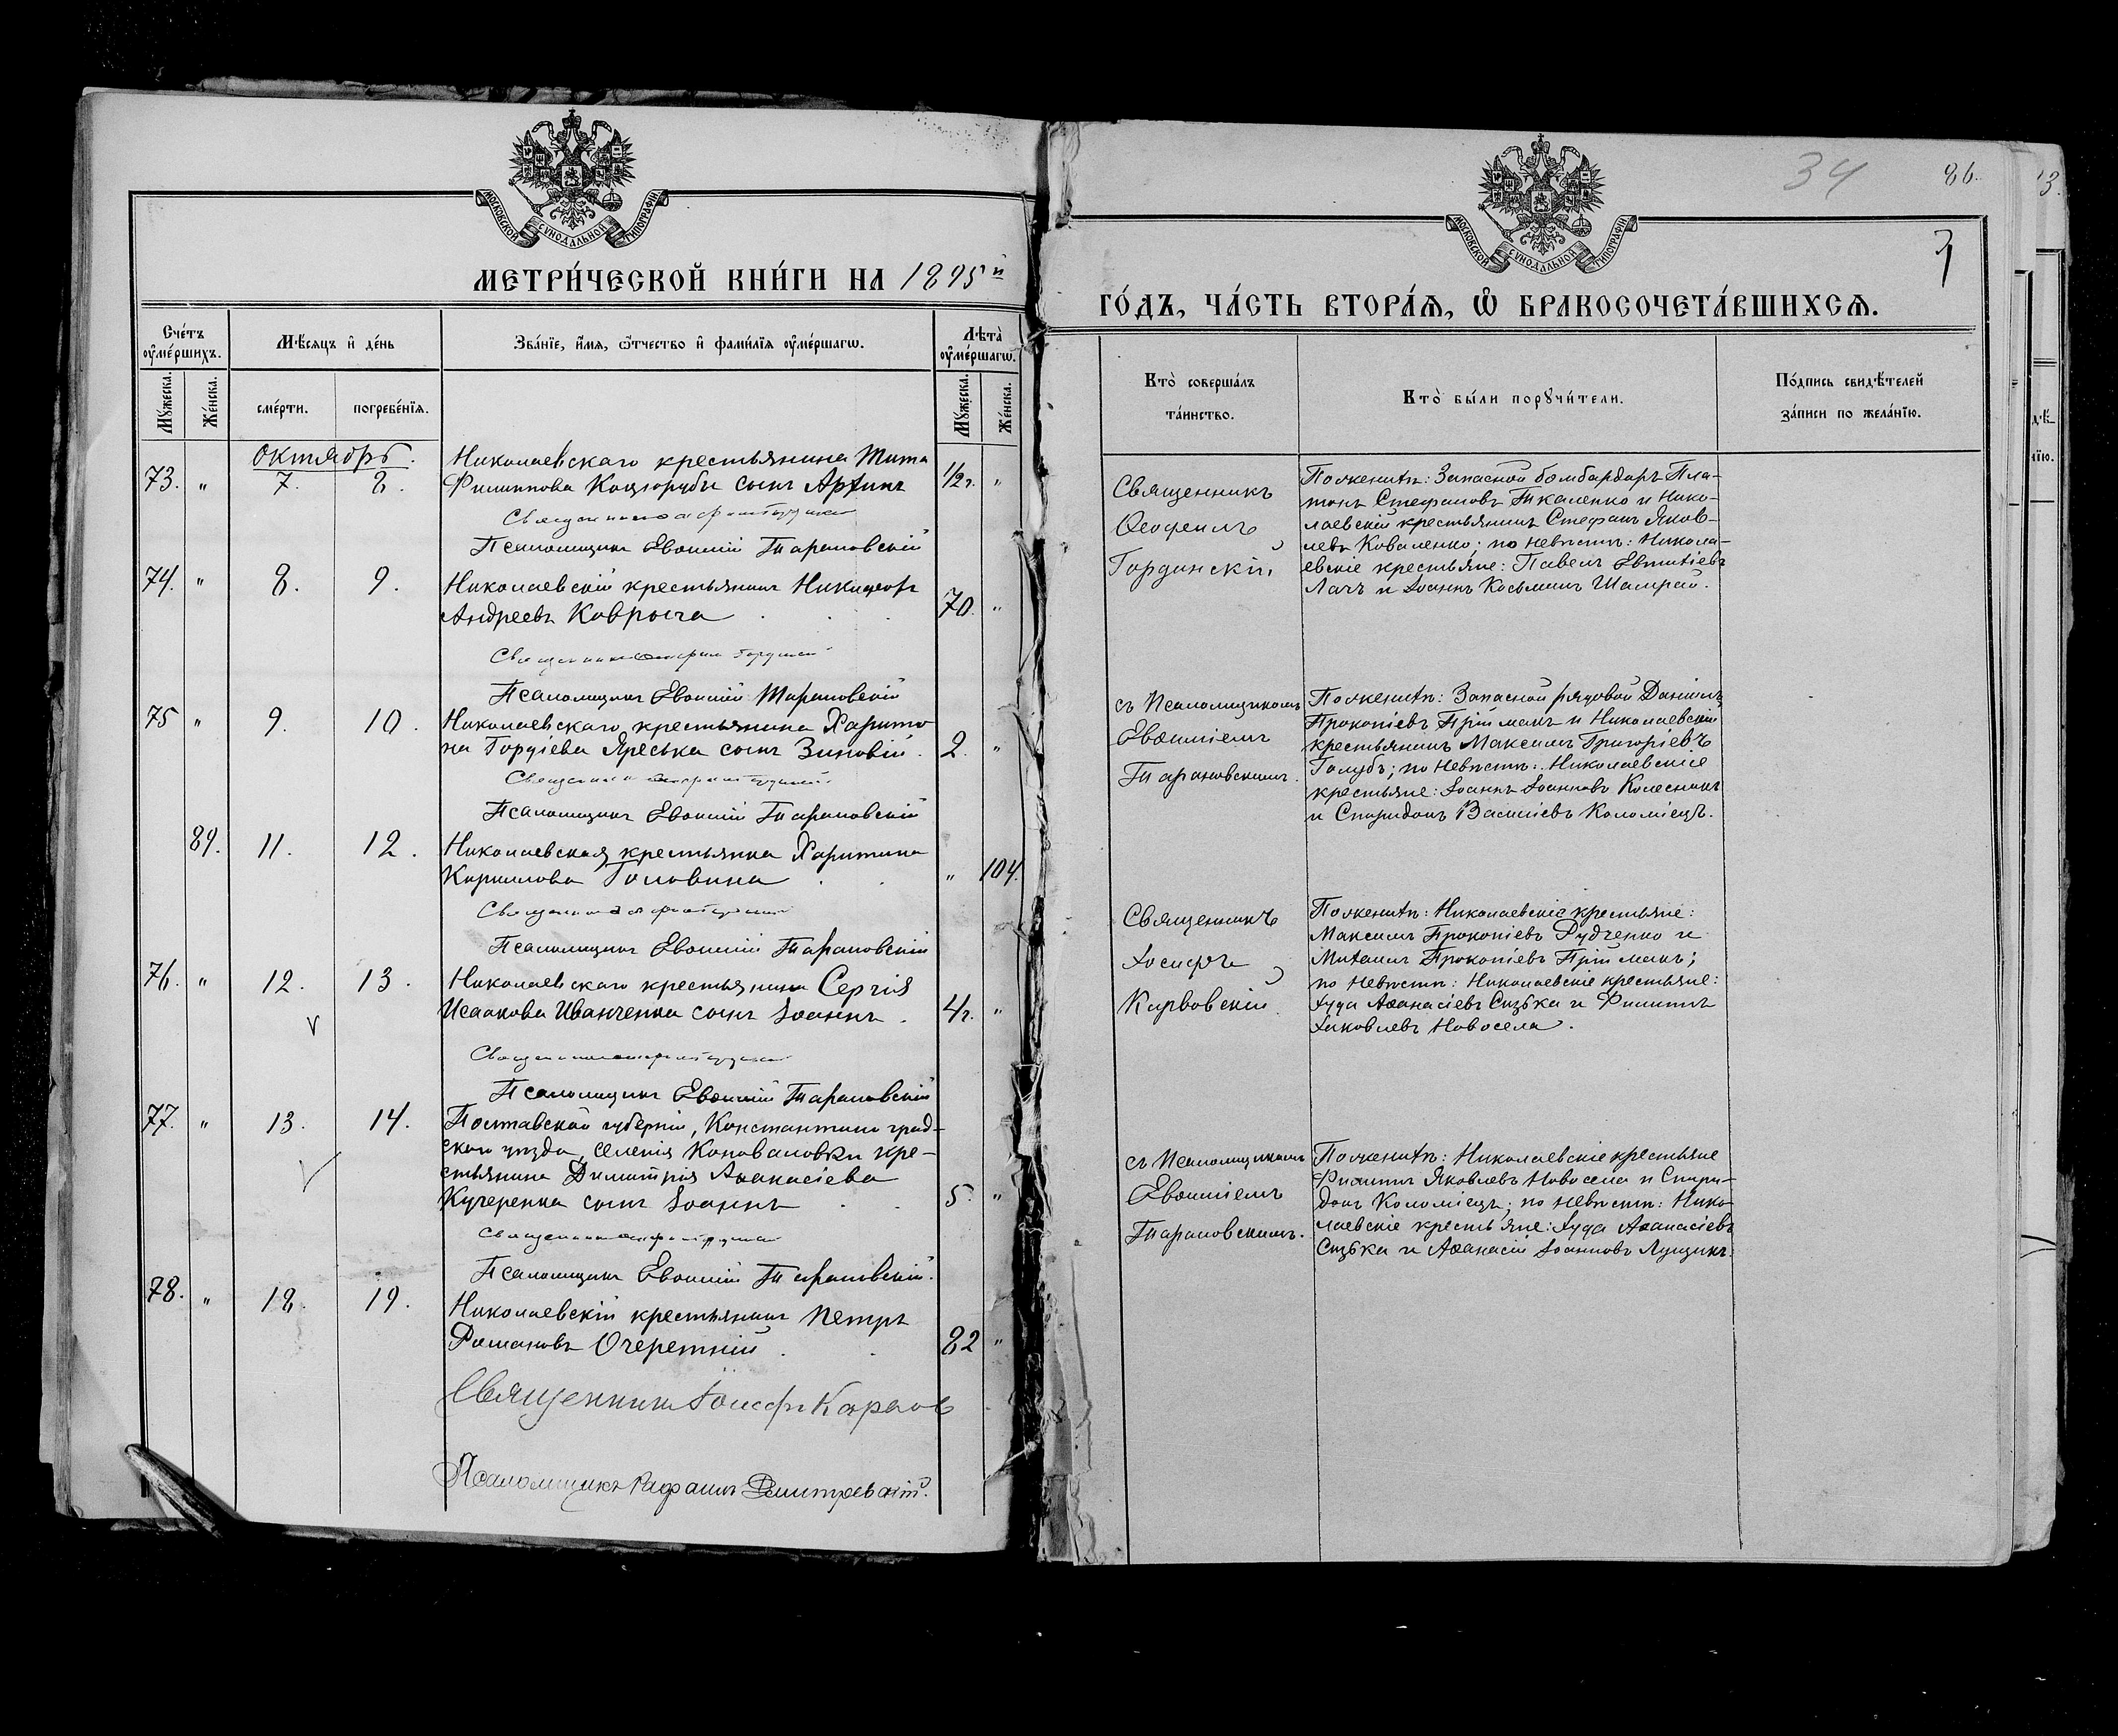 МОСКОВСКОЙ СУНОДАЛЬНОЙ ТИПОГРАФІИ
МЕТРИ́ЧЕСКОЙ КНИ́ГИ НА 1895й
Сче́тъ оумершихъ.
Мѣ́сяцъ и де́нь
Зва́нїе, и́мя, ѿтчество и фами́лїя оуме́ршагѡ.
Лѣта̀ оуме́ршагѡ.
Му́жеска.
Же́нска.
сме́рти.
погребе́нїя.
Му́жеска.
Же́нска.
Октябрь.
73. " 7. 8. Николаевскаго крестьянина Тита
Филиппова Коцюрубы сынъ Архипъ 1/2 г. "
Псаломщикъ Евѳимій Тарановскій
74. " 8. 9. Николаевскій крестьянинъ Никифоръ
Андреевъ Коврыга 70. "
Псаломщикъ Евѳимій Тарановскій
75 " 9. 10. Николаевскаго крестьянина Харито
на Гордіева Яреська сынъ Зиновій. 2. "
Псаломщикъ Евѳимій Тарановскій
89. 11. 12. Николаевская крестьянка Харитина
Кириллова Головина " 104.
Псаломщикъ Евѳимій Тарановскій
76. " 12. 13. Николаевскаго крестьянина Сергія
Исаакова Иванченка сынъ Іоаннъ. 4 г. "
Псаломщикъ Евѳимій Тарановскій
77. " 13. 14. Полтавской губерніи, Константиноград-
скаго уѣзда, селенія Коноваловки кре-
стьянина Димитрія Аѳанасіева
Кучеренка сынъ Іоаннъ 5. "
Псаломщикъ Евѳимій Тарановскій.
78. " 18. 19. Николаевскій крестьянинъ Петръ
Романовъ Очеретній 82 "
Священникъ Іосифъ
Псаломщикъ Рафаилъ Дмитревскій.
34 86.
МОСКОВСКОЙ СУНОДАЛЬНОЙ ТИПОГРАФІИ
ГО́ДЪ, ЧА́СТЬ ВТОРА́Я, Ѡ БРАКОСОЧЕТА́ВШИХСЯ.
Кто̀ соверша́лъ та́инство.
Кто̀ бы́ли поручи́тели.
По́дпись свидѣ́телей за́писи по жела́нїю.
Священникъ
Ѳеофилъ
Гординскій,
По женихѣ: Запасной бомбардиръ Пла-
тонъ Стефановъ Ткаленко и Нико-
лаевскій крестьянинъ Стефанъ Яков-
левъ Коваленко; по невѣстѣ: Никола-
евскіе крестьяне: Павелъ Евтихіевъ
Лачъ и Іоаннъ Косьминъ Шамрай.
съ Псаломщикомъ
Евѳиміемъ
Тарановскимъ.
По женихѣ: Запасной рядовой Даніилъ
Прокопіевъ Пріймакъ и Николаевскій
крестьянинъ Максимъ Григоріевъ
Голубъ; по невѣстѣ: Николаевскіе
крестьяне: Іоаннъ Іоанновъ Колесникъ
и Спиридонъ Василіевъ Коломіецъ.
Священникъ
Іосифъ
По женихѣ: Николаевскіе крестьяне:
Максимъ Прокопіевъ Рудченко и
Михаилъ Прокопіевъ Пріймакъ;
по невѣстѣ: Николаевскіе крестьяне:
Іуда Аѳанасіевъ Сизька и Филиппъ
Іаковлевъ Новосела.
съ Псаломщикомъ
Евѳиміемъ
Тарановскимъ.
По женихѣ: Николаевскіе крестьяне
Филиппъ Яковлевъ Новосела и Спири-
донъ Коломіецъ; по невѣстѣ: Нико-
лаевскіе крестьяне: Іуда Аѳанасіевъ
Сизька и Аѳанасій Іоанновъ Лущикъ.